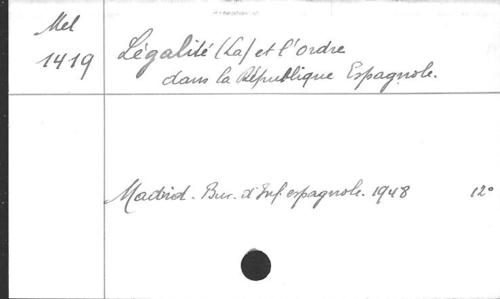 Mel
1419
Légalité (La) et l'ordre
dans la République Espagnole.
Madrid. Bur. d'Inf. espagnole. 1948 12°